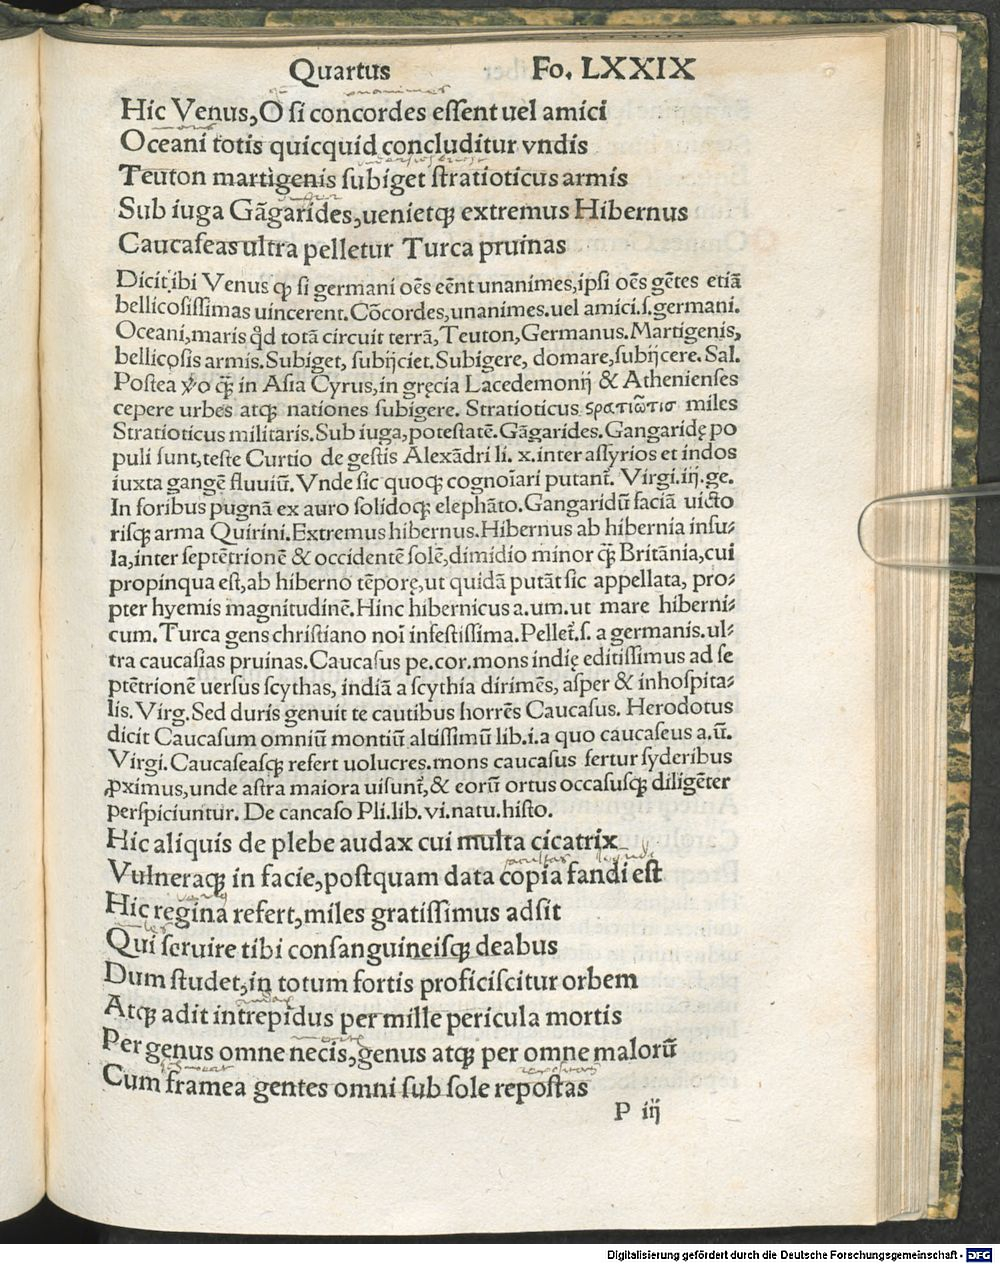 Quartus Fo. LXXIX
Hic Venus, O si concordes essent uel amici
Oceani totis quicquid concluditur vndis
Teuton martigenis subiget stratioticus armis
Sub iuga Gãgarides, uenietqꝫ extremus Hibernus
Caucaseas ultra pelletur Turca pruinas
Dicit ibi Venus ꝙ si germani oẽs eẽnt unanimes, ipsi oẽs gẽtes etiã
bellicosissimas uincerent. Cõcordes, unanimes. uel amici. s. germani.
Oceani, maris qd̃ totã circuit terrã, Teuton, Germanus. Martigenis,
bellicosis armis. Subiget, subijciet. Subigere, domare, subijcere. Sal.
Postea ꝟo q̃ꝫ in Asia Cyrus, in gręcia Lacedemonij & Athenienses
cepere urbes atqꝫ nationes subigere. Stratioticus ϛρατιω̃τισ miles
Stratioticus militaris. Sub iuga, potestatẽ. Gãgarides. Gangaridę po
puli sunt, teste Curtio de gestis Alexãdri li. x. inter assyrios et indos
iuxta gangẽ fluuiũ. Vnde sic quoqꝫ cognoĩari putant̃. Virgi. iij. ge.
In foribus pugnã ex auro solidoqꝫ elephãto. Gangaridũ faciã uicto
risqꝫ arma Quirini. Extremus hibernus. Hibernus ab hibernia insu⸗
la, inter septẽtrionẽ & occidentẽ solẽ, dimidio minor q̃ꝫ Britãnia, cui
propinqua est, ab hiberno tẽpore, ut quidã putãt sic appellata, pro⸗
pter hyemis magnitudinẽ. Hinc hibernicus a. um. ut mare hiberni⸗
cum. Turca gens christiano noĩ infestissima. Pellet̃. s. a germanis. ul⸗
tra caucasias pruinas. Caucasus pe. cor. mons indię editissimus ad se
ptẽtrionẽ uersus scythas, indiã a scythia dirimẽs, asper & inhospita⸗
lis. Virg. Sed duris genuit te cautibus horrẽs Caucasus. Herodotus
dicit Caucasum omniũ montiũ altissimũ lib. i. a quo caucaseus a. ũ.
Virgi. Caucaseasqꝫ refert uolucres. mons caucasus fertur syderibus
ꝓximus, unde astra maiora uisunt̃, & eorũ ortus occasusqꝫ diligẽter
perspiciuntur. De cancaso Pli. lib. vi. natu. histo.
Hic aliquis de plebe audax cui multa cicatrix
Vulneraqꝫ in facie, postquam data copia fandi est
Hic regina refert, miles gratissimus adsit
Qui seruire tibi consanguineisqꝫ deabus
Dum studet, in totum fortis proficiscitur orbem
Atqꝫ adit intrepidus per mille pericula mortis
Per genus omne necis, genus atqꝫ per omne malorũ
Cum framea gentes omni sub sole repostas
P iij
Digitalisierung gefördert durch die Deutsche Forschungsgemeinschaft - DFG